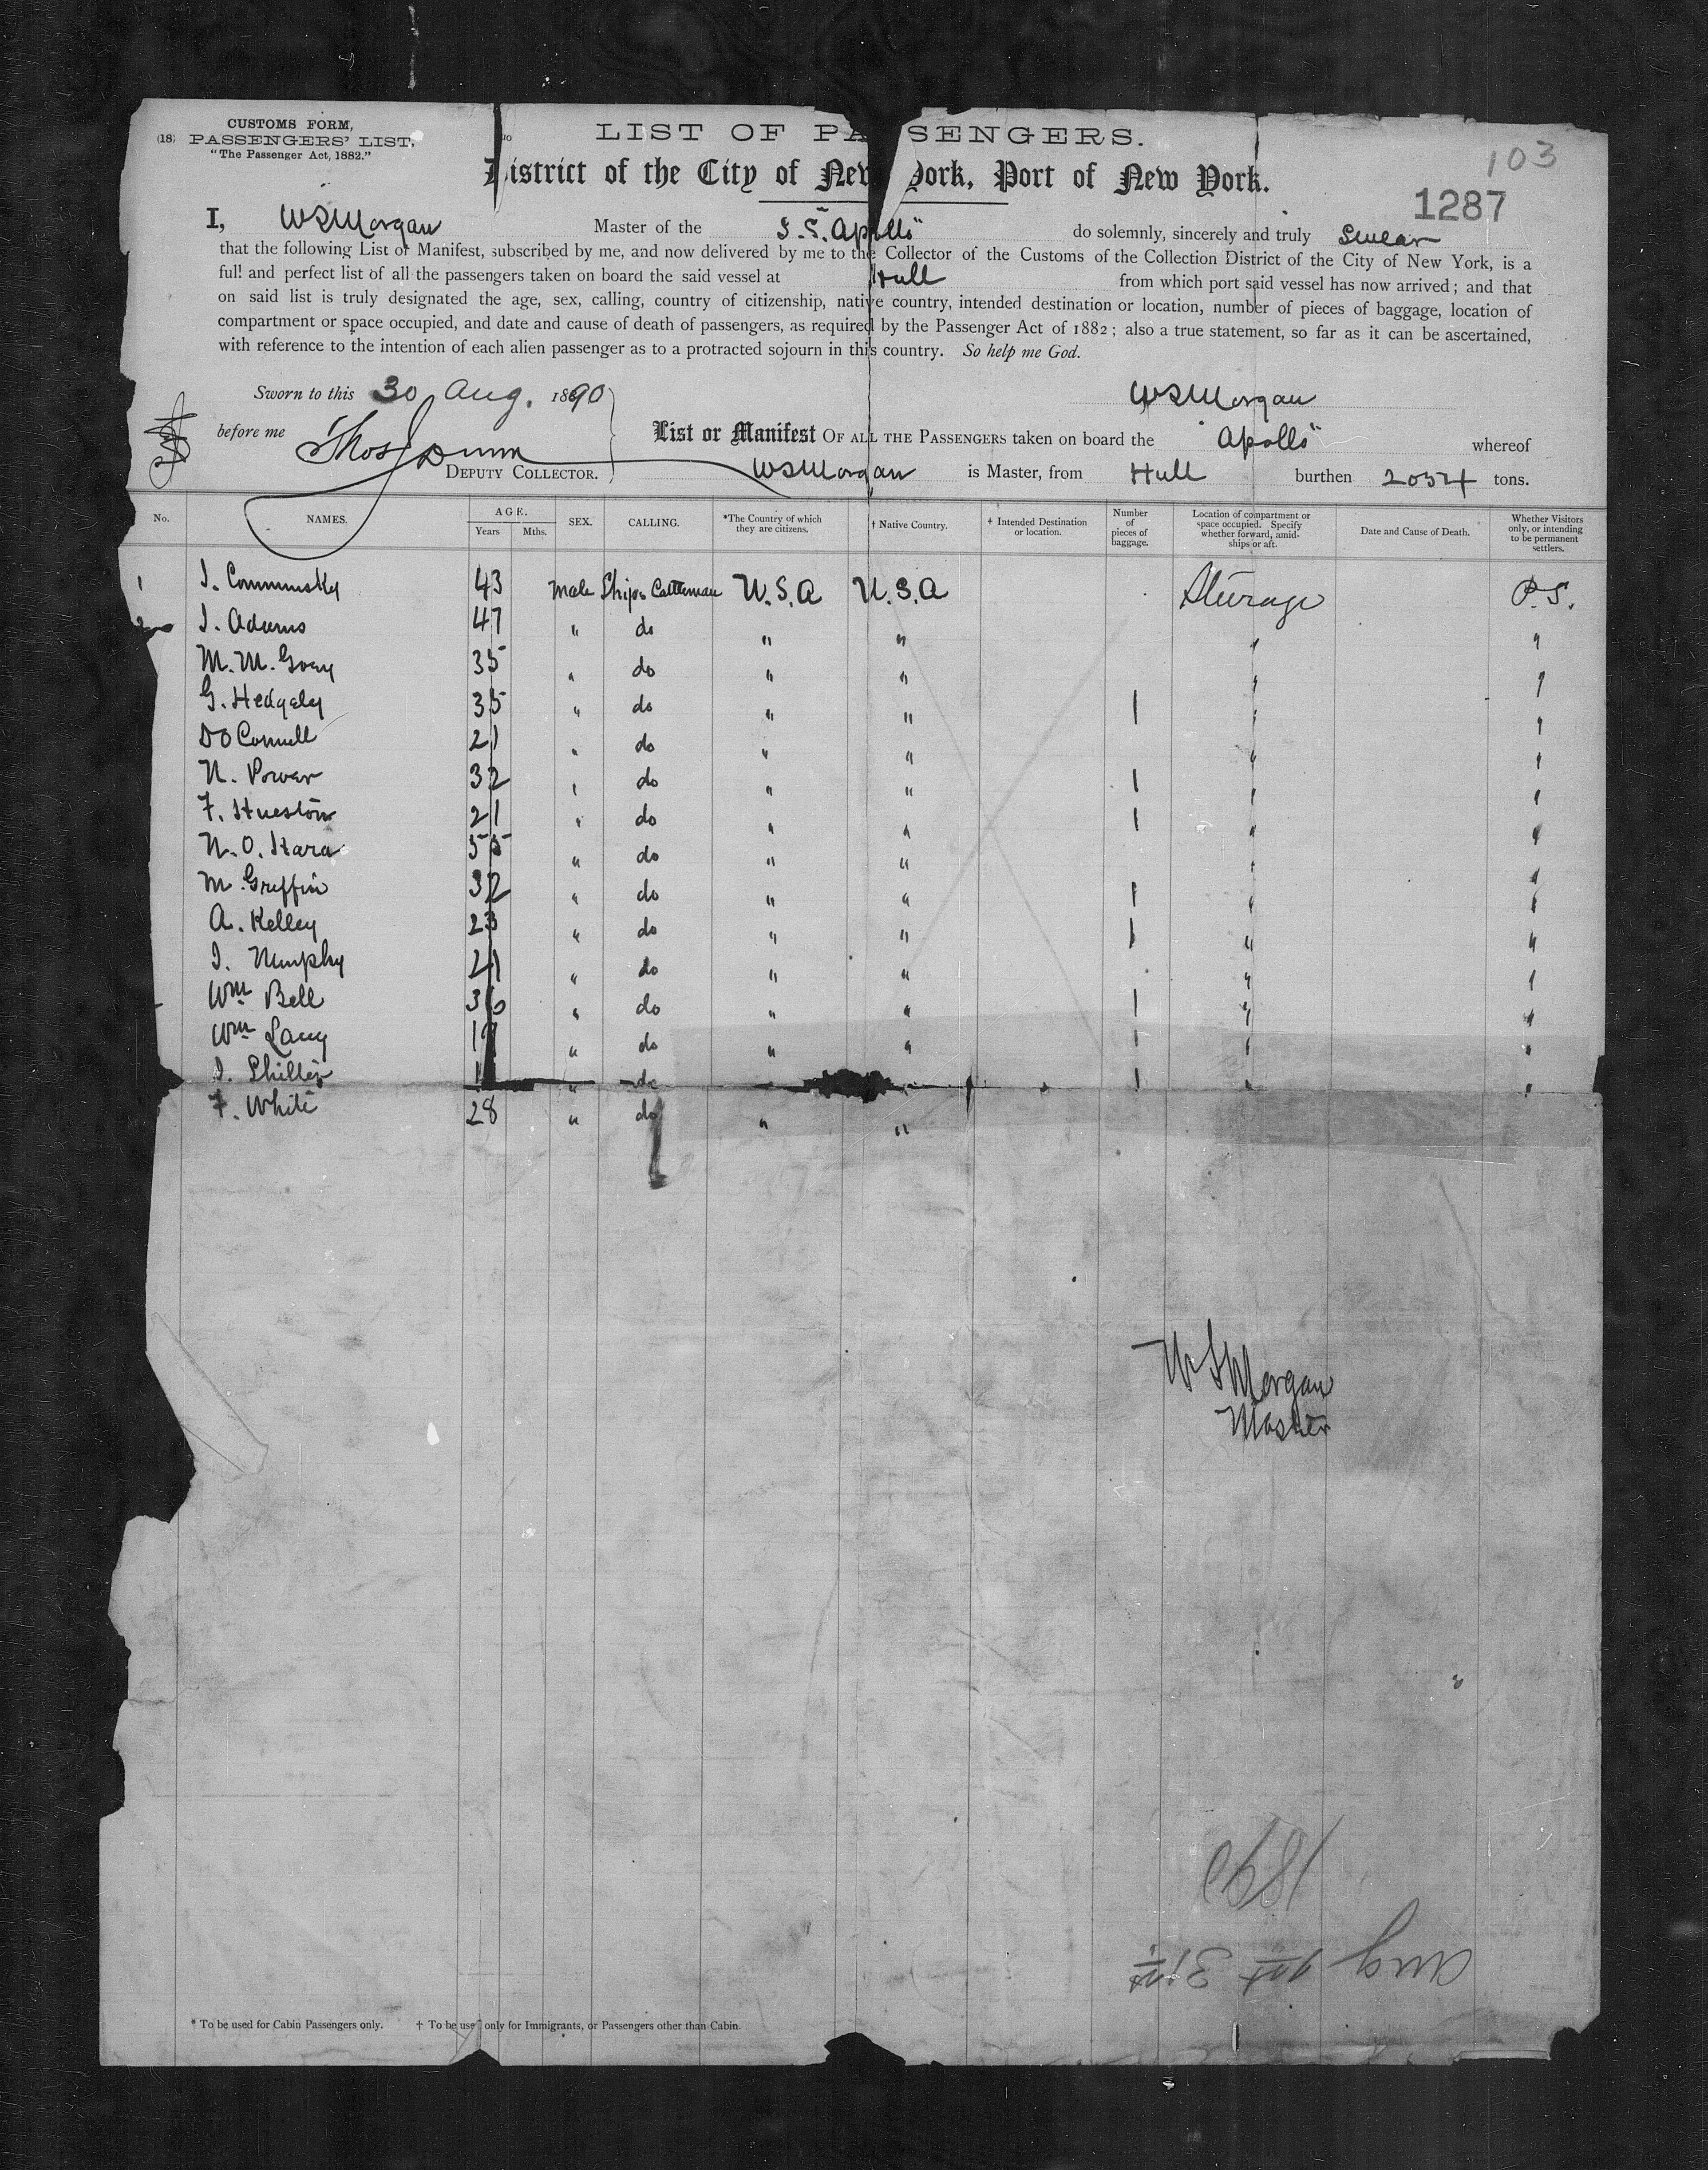 CUSTOMS FORM,
(18) PASSENGERS' LIST.
"The Passenger Act, 1882."
LIST OF PASSENGERS.
District of the City of New York, Port of New York.
103
1287
I, W S Morgan Master of the S.S. "Apollo" do solemnly, sincerely and truly Swear
that the following List or Manifest, subscribed by me, and now delivered by me to the Collector of the Customs of the Collection District of the City of New York, is a
full and perfect list of all the passengers taken on board the said vessel at Hull from which port said vessel has now arrived; and that
on said list is truly designated the age, sex, calling, country of citizenship, native country, intended destination or location, number of pieces of baggage, location of
compartment or space occupied, and date and cause of death of passengers, as required by the Passenger Act of 1882; also a true statement, so far as it can be ascertained,
with reference to the intention of each alien passenger as to a protracted sojourn in this country. So help me God.
Sworn to this 30 Aug. 1890
W S Morgan
before me Thos Dunn
DEPUTY COLLECTOR.
List or Manifest OF ALL THE PASSENGERS taken on board the "Apollo" whereof
W S Morgan is Master, from Hull burthen 2054 tons.
No. NAMES. AGE. Years Mths. SEX. CALLING. *The Country of which they are citizens. † Native Country. + Intended Destination or location. Number of pieces of baggage. Location of compartment or space occupied. Specify whether forward, amidships or aft. Date and Cause of Death. Whether Visitors only, or intending to be permanent settlers.
1 J. Commusky 43 Male Ships Cattleman U.S.A U.S.A Steerage P.S.
2 J. Adams 47 " do " " " "
M. M. Goey 35 " do " " " "
G. Hedgely 35 " do " " 1 " "
D O Connell 21 " do " " " "
N. Power 32 " do " " 1 " "
F. Hueston 21 " do " " 1 " "
N. O. Hara 55 " do " " " "
M. Griffin 32 " do " " 1 " "
A. Kelley 23 " do " " 1 " "
J. Murphy 21 " do " " " "
Wm Bell 36 " do " " 1 " "
Wm Lacy " do " " 1 " "
J. Phillip " do " " 1 " "
F. White 28 " do " "
W S Morgan
Master
1890
Aug 1st 31st
* To be used for Cabin Passengers only. † To be used only for Immigrants, or Passengers other than Cabin.